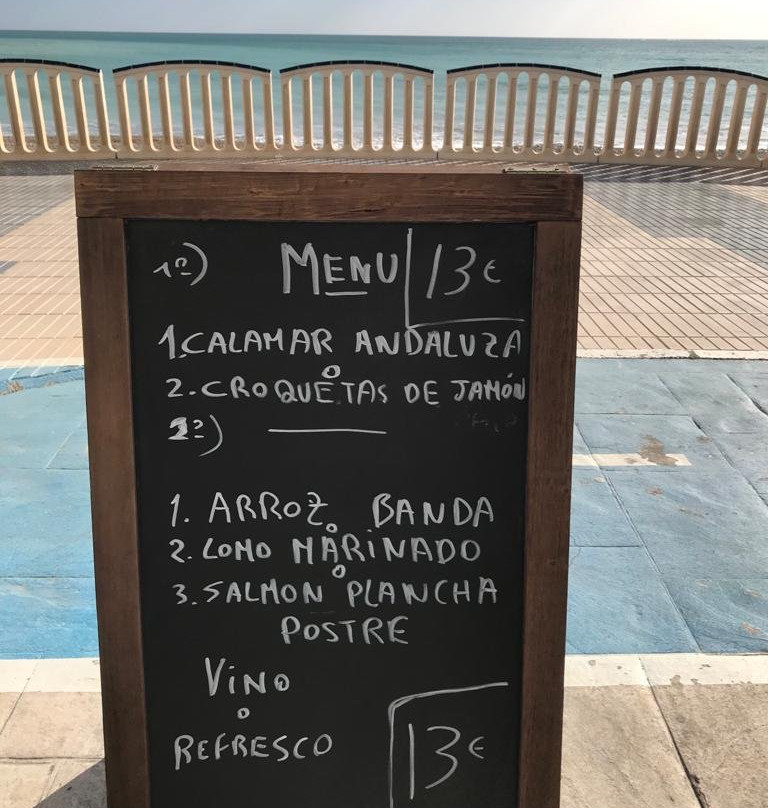 1º) MENU 13€
1. CALAMAR ANDALUZA
O
2. CROQUETAS DE JAMÓN
2º)
1. ARROZ BANDA
O
2. LOMO MARINADO
O
3. SALMON PLANCHA
POSTRE
VINO
O
REFRESCO 13€